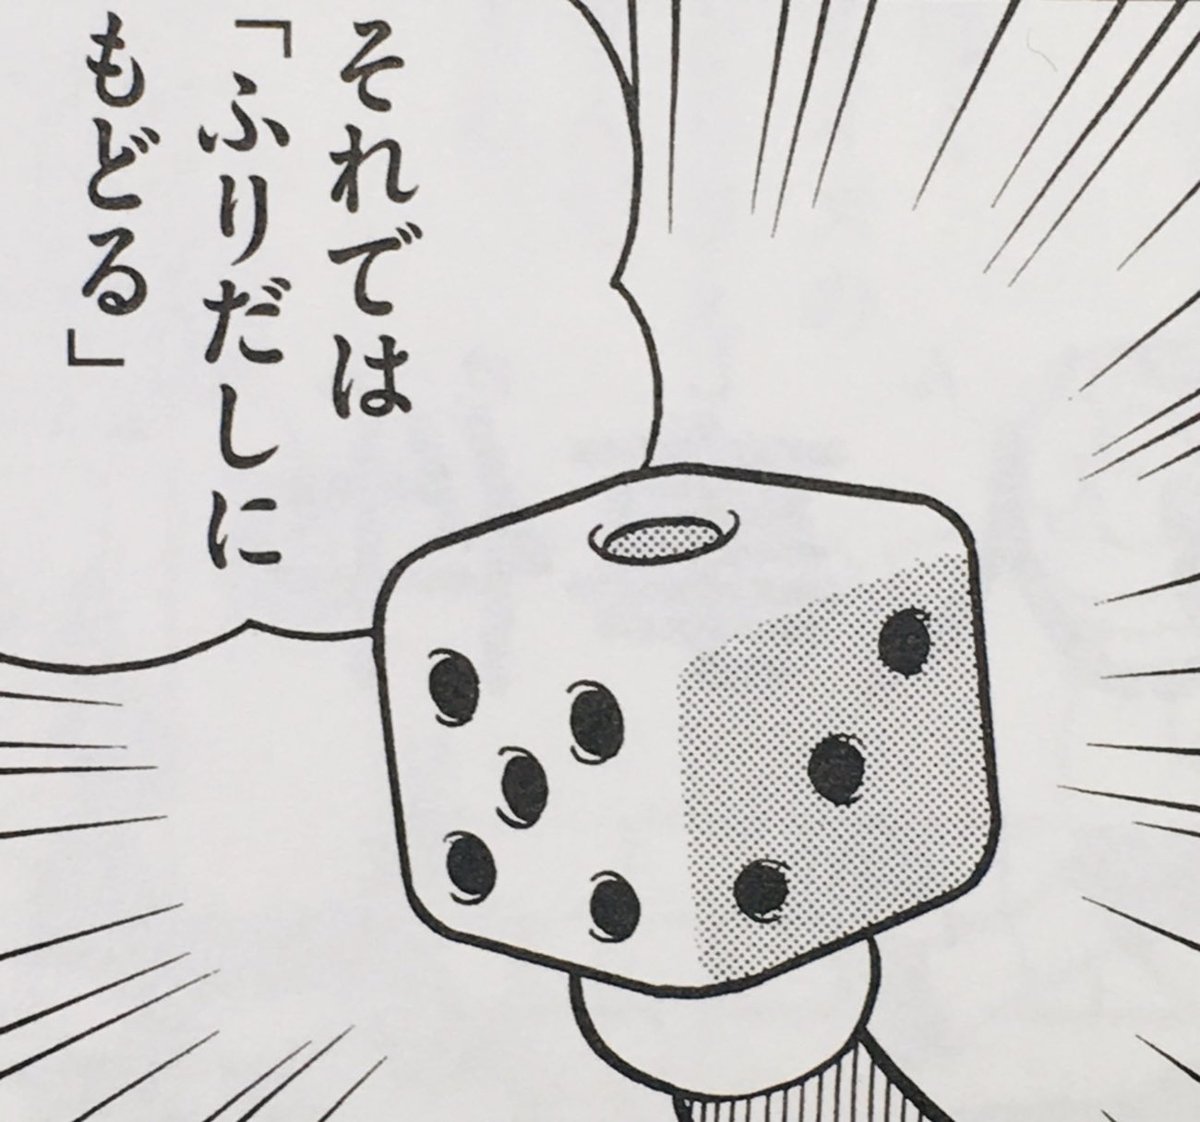 それでは
「ふりだしに
もどる」